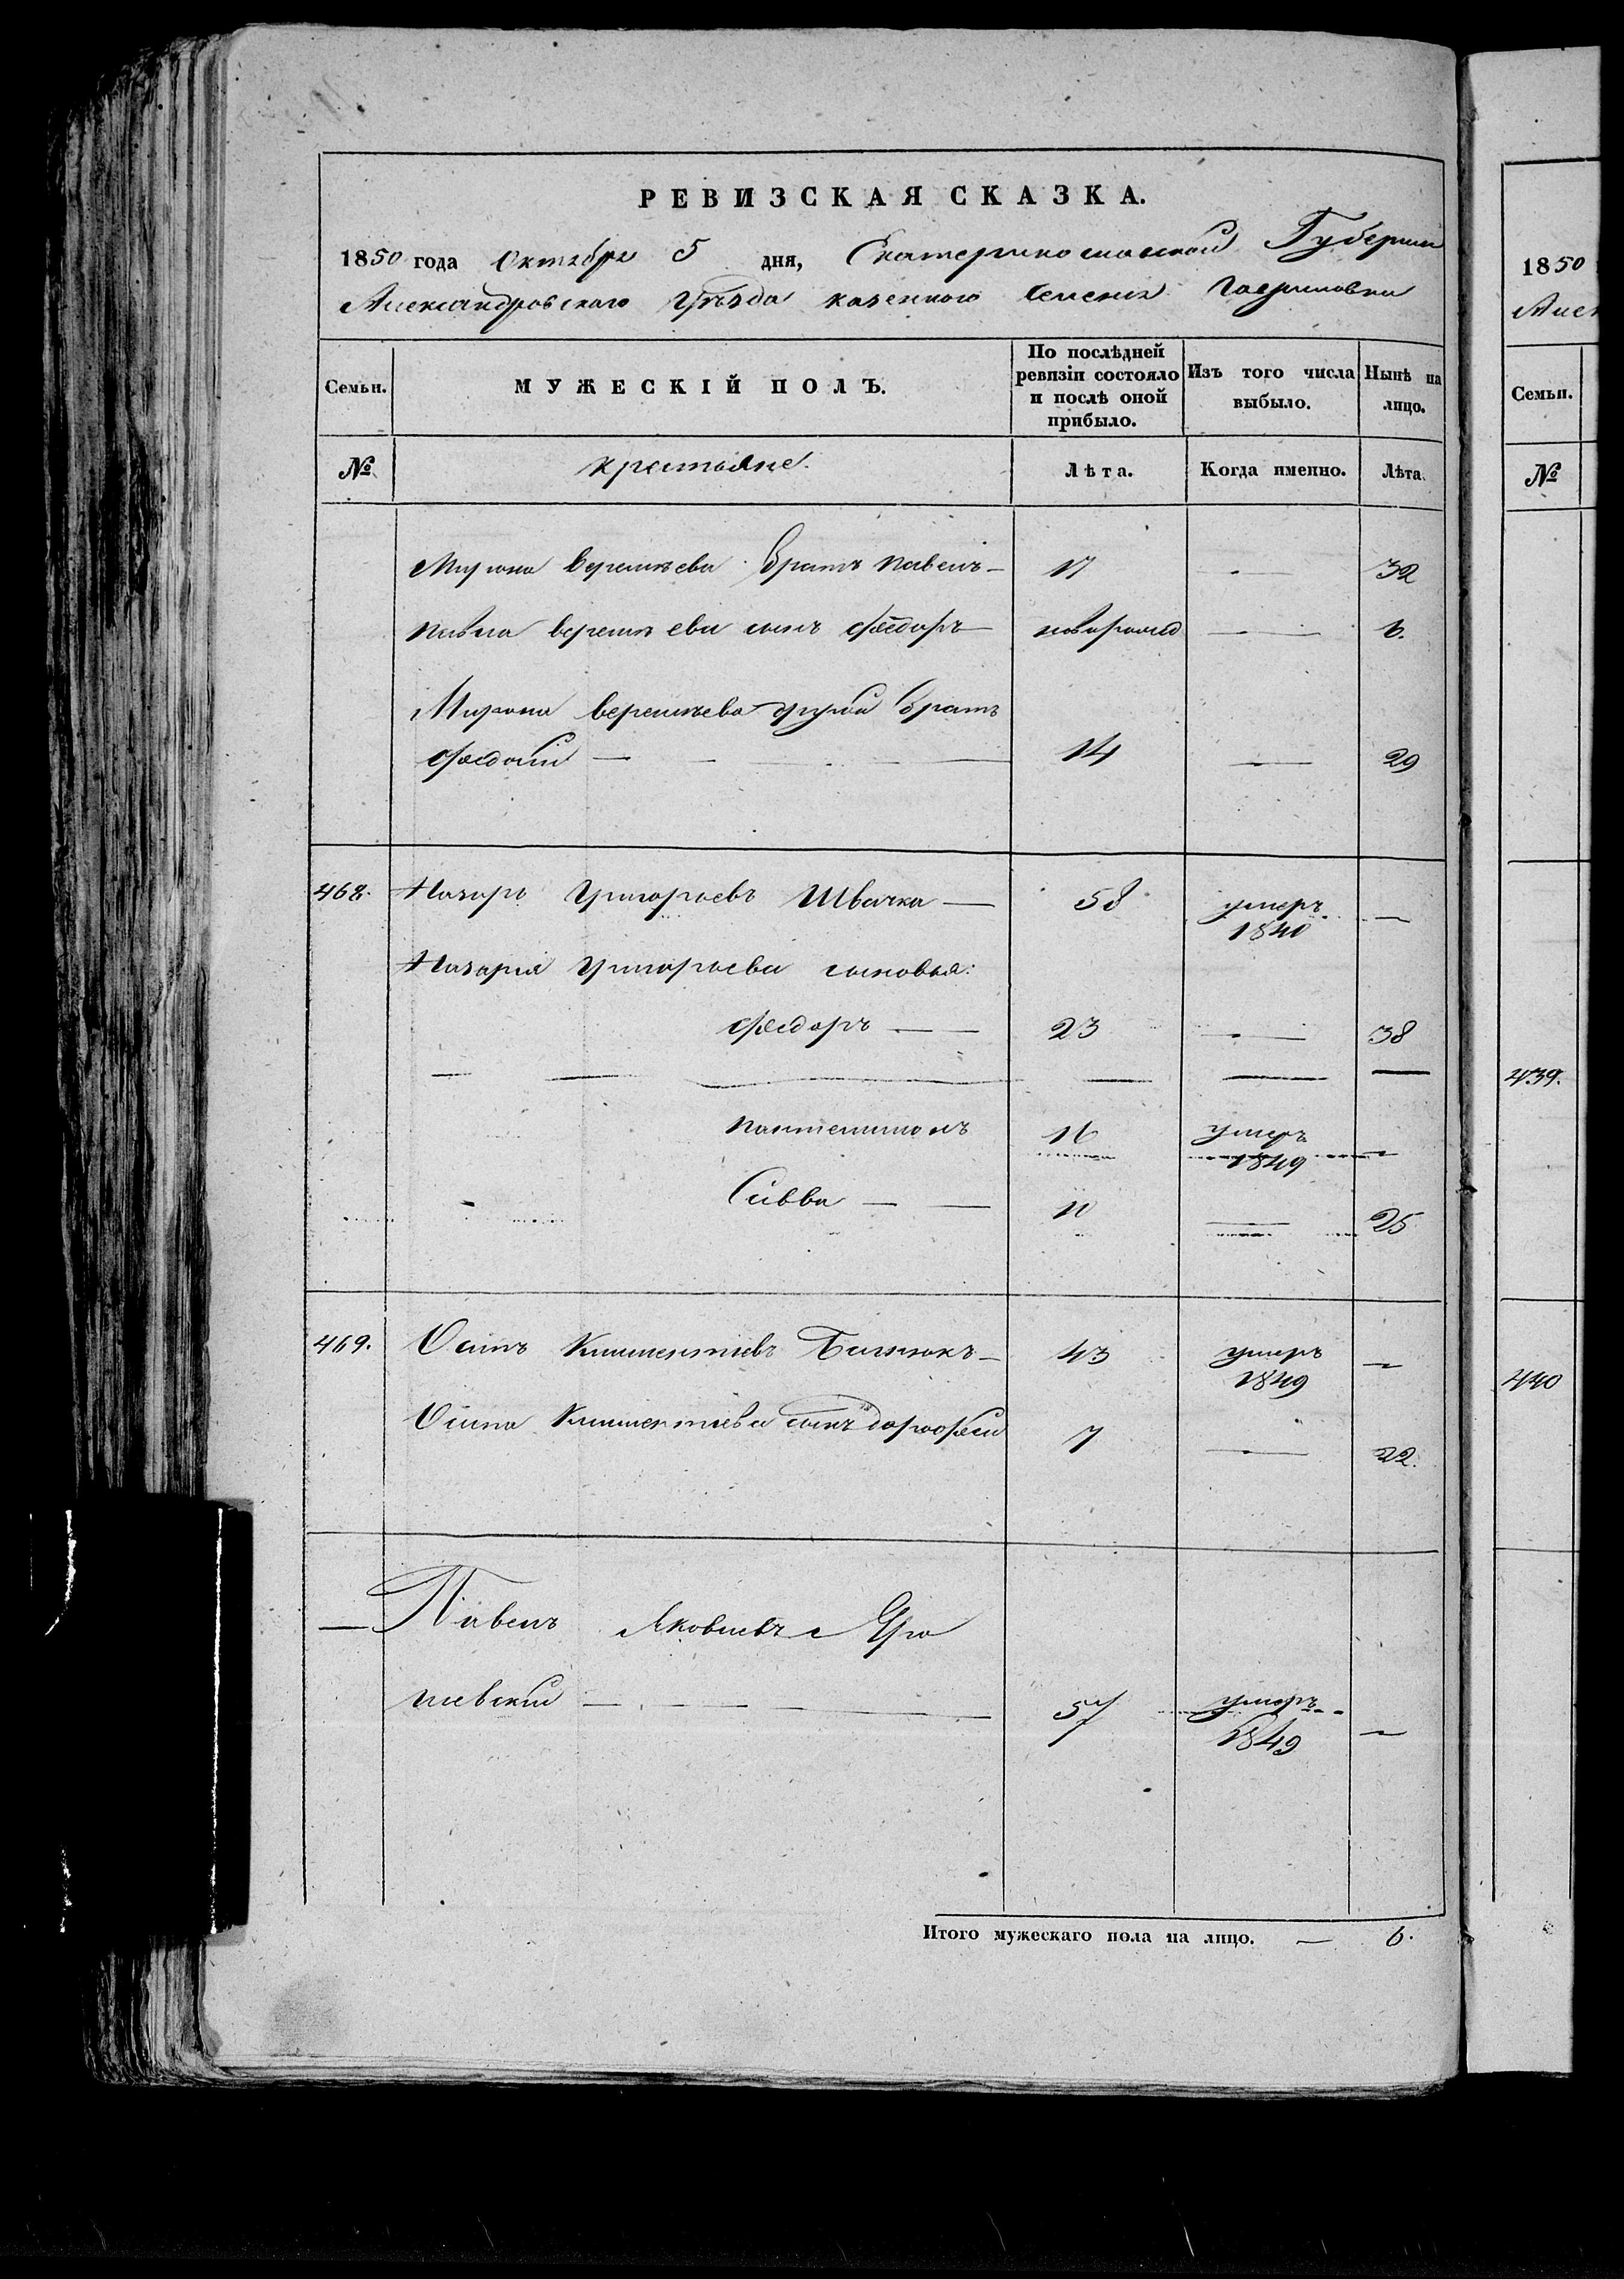 РЕВИЗСКАЯ СКАЗКА.
1850 года Октября 5 дня, Екатеринославской Губернии
Александровского Уѣзда казенного Селения Гавриловки
Семьи. МУЖЕСКІЙ ПОЛЪ. По послѣдней ревизіи состояло и послѣ оной прибыло. Изъ того числа выбыло. Нынѣ на лицо.
№ крестьяне. Лѣта. Когда именно. Лѣта.
Мирона братъ Павелъ — 17 — 32
Павла сынъ Федоръ — новорожд — 6.
Мирона другой братъ
Федосий — 14 — 29
468. Назаръ Григорьевъ Швачка — 58 умеръ 1840 —
Назария Григорьева сыновья:
Федоръ — 23 — 38
Пантелимонъ 16 умеръ 1849 —
Савва — 10 — 25
469. Осипъ Климентіевъ — 43 умеръ 1849 —
Осипа Климентіева сынъ Дорофей 7 — 22.
— Павелъ Яковлевъ
57 умеръ 1849 —
Итого мужескаго пола на лицо. — 6.
1850
Семьи.
№
439.
440